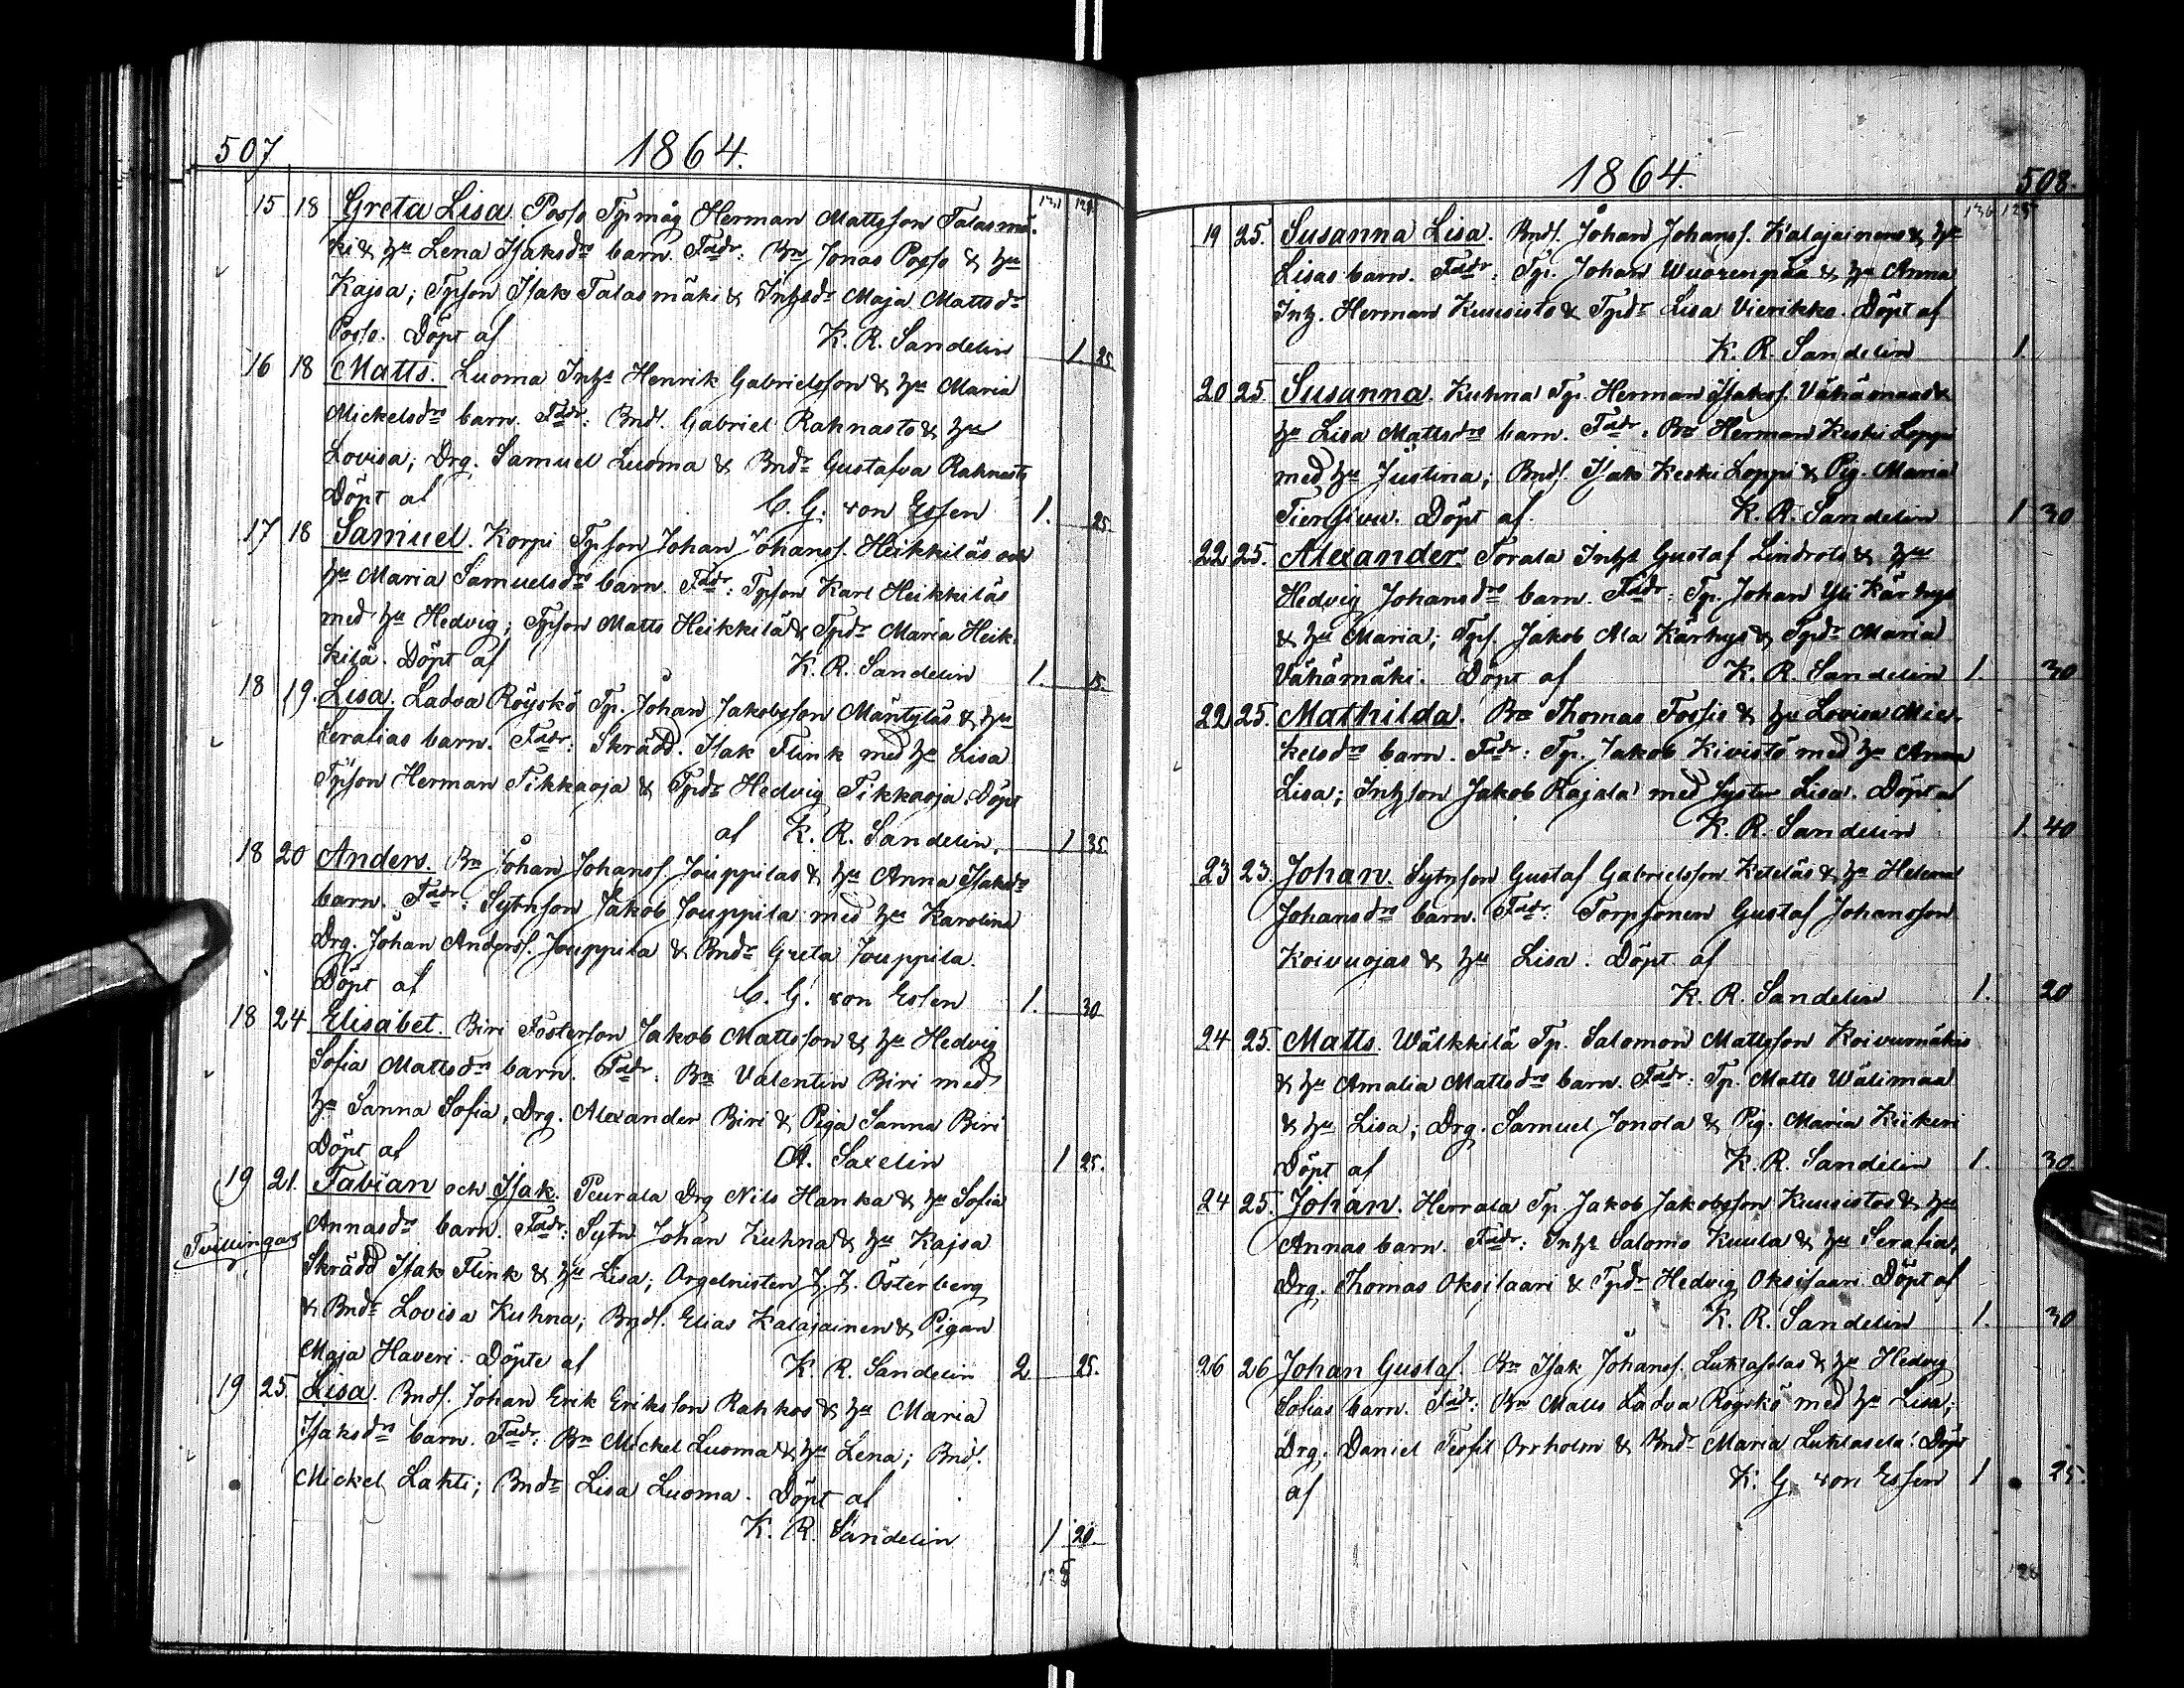 507 1864.
15 18 Greta Lisa. Posso Tpmåg Herman Mattsson Talasmä-
ki & hu Lena Isaksdrs barn. Faddr: Bn Jonas Posso & hu
Kajsa; Tpson Isak Talasmäki & Inhsdr Maja Mattsdr
Posso. Döpt af K. R. Sandelin 1 25.
16 18 Matts. Luoma Inhs Henrik Gabrielsson & hu Maria
Mickelsdrs barn. Faddr: Bnds. Gabriel Rahnasto & hu
Lovisa; Drg. Samuel Luoma & Bndr Gustafva Rahnasto
Döpt af C. G. von Essen 1. 25.
17 18 Samuel. Korpi Tpson Johan Johanss. Heikkiläs och
hu Maria Samuelsdrs barn. Faddr: Tpson Karl Heikkiläs
med hu Hedvig; Tpson Matts Heikkilä & Tpdr Maria Heik-
kilä. Döpt af K. R. Sandelin 1. 15.
18 19. Lisa. Ladva Röyskö Tp. Johan Jakobsson Mäntyläs & hu
Serafias barn. Faddr: Skrädd. Isak Flink med hu Lisa
Tpson Herman Tikkaoja & Tpdr Hedvig Tikkaoja. Döpt
af K. R. Sandelin. 1 35.
18 20 Anders. Bn Johan Johanss. Jouppilas & hu Anna Isaksdrs
barn. Faddr: Sytnson Jakob Jouppila med hu Karolina
Drg. Johan Anderss. Jouppila & Bndr Greta Jouppila.
Döpt af C. G. von Essen 1. 30
18 24 Elisabet. Biri Fosterson Jakob Mattsson & hu Hedvig
Sofia Mattsdrs barn. Faddr: Bn Valentin Biri med
hu Sanna Sofia, Drg. Alexander Biri & Piga Sanna Biri
Döpt af A. Saxelin 1 25.
19 21. Fabian och Isak. Peurala Drg Nils Hanka & hu Sofia
Annasdrs barn. Faddr: Sytn Johan Kuhna & hu Kajsa
Tvillingar
Skrädd Isak Flink & hu Lisa; Orgelnisten J. J. Österberg
& Bndr Lovisa Kuhna; Bnds. Elias Kalajainen & Pigan
Maja Haveri. Döpte af K. R. Sandelin 2 25.
19 25. Lisa. Bnds. Johan Erik Eriksson Rahkos & hu Maria
Isaksdrs barn. Faddr: Bn Mickel Luoma & hu Lena; Bnds.
Mickel Lahti; Bndr Lisa Luoma. Döpt af
K. R. Sandelin 1 20.
1864. 508.
19 25. Susanna Lisa. Bnds. Johan Johanss. Kalajainens & hu
Lisas barn. Faddr: Tp. Johan Wuorenpää & hu Anna
Inh. Herman Kuusisto & Tpdr Lisa Vierikko. Döpt af
K. R. Sandelin 1.
20 25. Susanna. Kuhna Tp. Herman Isakss. Vähämaas &
hu Lisa Mattsdrs barn. Faddr: Bn Herman Keski Loppi
med hu Justina; Bnds. Isak Keski Loppi & Pig. Maria
Tiensivu. Döpt af K. R. Sandelin 1 30
22 25. Alexander. Torala Inhs Gustaf Lindrots & hu
Hedvig Johansdrs barn. Faddr: Tp. Johan Yli Kärhys
& hu Maria; Tps. Jakob Ala Kärhys & Tpdr Maria
Vähämäki. Döpt af K. R. Sandelin 1. 30
22 25. Mathilda. Bn Thomas Fossis & hu Lovisa Mic-
kelsdrs barn. Faddr: Tp. Jakob Kivistö med hu Anna
Lisa; Inhson Jakob Rajala med Syster Lisa. Döpt af
K. R. Sandelin 1. 40
23 23. Johan. Sytnson Gustaf Gabrielsson Keteläs & hu Helena
Johansdrs barn. Faddr: Torpsonen Gustaf Johansson
Koivuojas & hu Lisa. Döpt af
K. R. Sandelin 1. 20
24 25. Matts. Wälkkilä Tp. Salomon Mattsson Koivumäkis
& hu Amalia Mattsdrs barn. Faddr: Tp. Matts Wälimaa
& hu Lisa; Drg. Samuel Jonola & Pig. Maria Kiikeri
Döpt af K. R. Sandelin 1. 30
24 25. Johan. Herrala Tp. Jakob Jakobsson Kuusistos & hu
Annas barn. Faddr: Inhs Salomo Kuula & hu Serafia,
Drg. Thomas Oksisaari & Tpdr Hedvig Oksisaari. Döpt af
K. R. Sandelin 1. 30
26 26 Johan Gustaf. Bn Isak Johanss. Luhtaselas & hu Hedvig
Sofias barn. Faddr: Bn Matts Ladva Röyskö med hu Lisa;
Drg. Daniel Teofil Orrholm & Bndr Maria Luhtasela. Döpt
af K. G. von Essen 1 25.